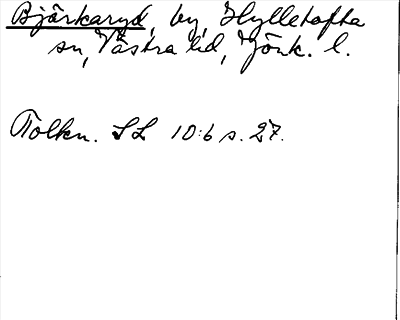 Bjärkaryd, by, Hylletofta
sn, Västra hd, Jönk. l.
Tolkn. SL 10:6 s. 27.